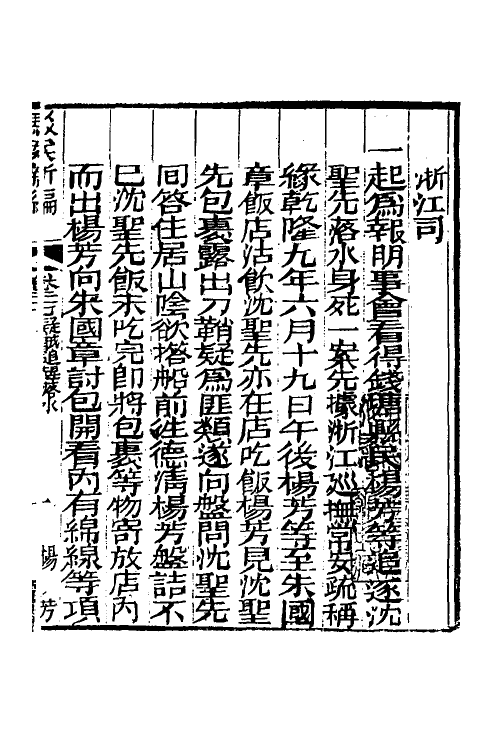 浙江司
一起爲報明事會看得錢塘縣民楊芳等追逐沈
聖先落水身死一案先據浙江巡撫常安疏稱
緣乾隆九年六月十九日午後楊芳等至朱國
章飯店沽飲沈聖先亦在店吃飯楊芳見沈聖
先包裹露出刀鞘疑爲匪類遂向盤問沈聖先
回答住居山陰欲搭船前往德清楊芳盤詰不
已沈聖先飯未吃完即將包裹等物寄放店內
而出楊芳向朱國章討包開看內有綿線等項
成案新編
楊芳